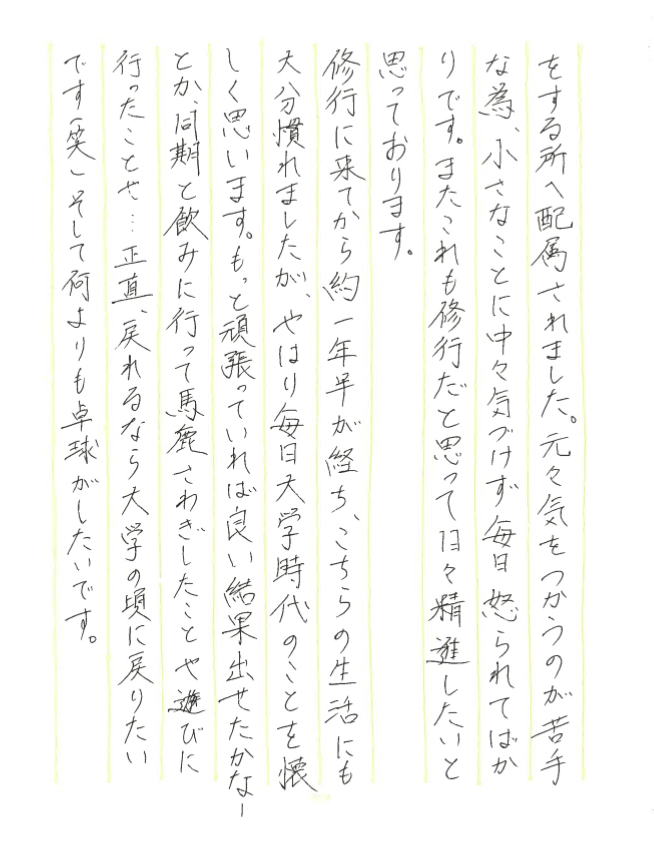 をする所へ配属されました。元々気をつかうのが苦手
な為、小さなことに中々気づけず毎日怒られてばか
りです。またこれも修行だと思って日々精進したいと
思っております。
修行に来てから約一年半が経ち、こちらの生活にも
大分慣れましたが、やはり毎日大学時代のことを懐
しく思います。もっと頑張っていれば良い結果出せたかなー
とか、同期と飲みに行って馬鹿さわぎしたことや遊びに
行ったことや…正直、戻れるなら大学の頃に戻りたい
です(笑)そして何よりも卓球がしたいです。